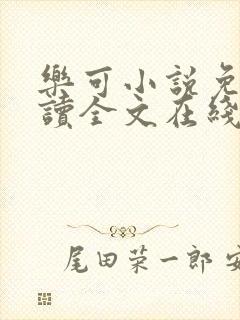 樂可小説免
讀全文在綫
尾田荣一郎 安